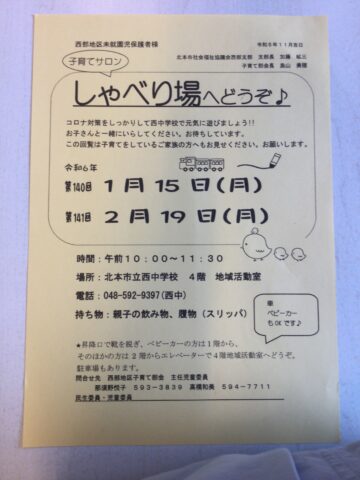 西部地区未就園児保護者様
令和5年11月吉日
子育てサロン
北本市社会福祉協議会西部支部 支部長 加藤 紘三
子育て部会長 島山 美穂
しゃべり場へどうぞ♪
コロナ対策をしっかりして西中学校で元気に遊びましょう!!
お子さんと一緒にいらしてください。お待ちしています。
この回覧は子育てをしているご家族の方へもお見せください。お願いします。
令和6年
第140回 1月15日(月)
第141回 2月19日(月)
時間:午前10:00～11:30
場所:北本市立西中学校 4階 地域活動室
電話:048-592-9397(西中)
持ち物:親子の飲み物、履物(スリッパ)
車
ベビーカー
もOKです♪
★昇降口で靴を脱ぎ、ベビーカーの方は1階から、
そのほかの方は2階からエレベーターで4階地域活動室へどうぞ。
駐車場もあります。
問合せ先 西部地区子育て部会 主任児童委員
那須野悦子 593-3839 高橋和美 594-7711
民生委員・児童委員